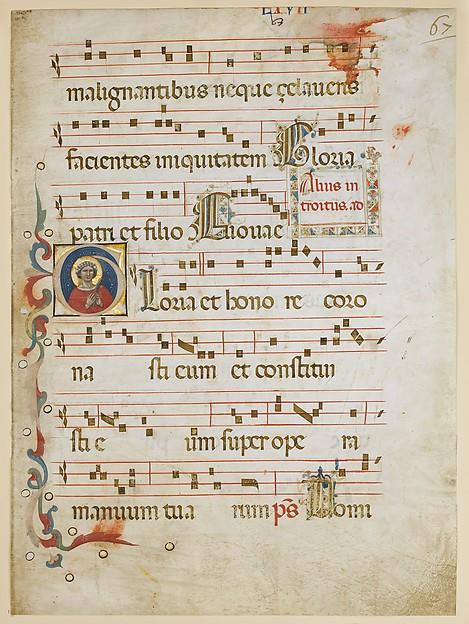 LXVII
67
malignantibus neque çelaveris
facientes iniquitatem Gloria
Alius in
troitus. ad
patri et filio Euouae
Gloria et hono re coro
na sti eum et constitui
sti e um super ope ra
manuum tua rum ps Domi